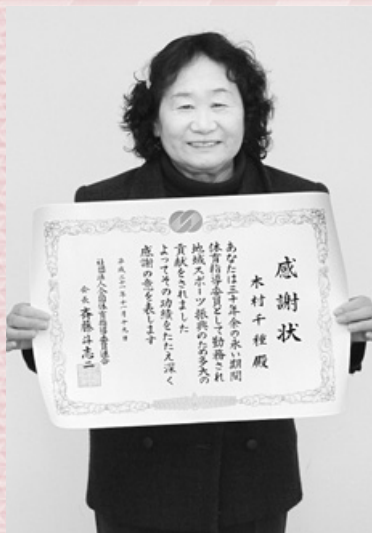 感謝状
木村千種殿
あなたは三十年余の永い期間
体育指導委員として勤務され
地域スポーツ振興のため多大の
貢献をされました
よってその功績をたたえ深く
感謝の意を表します
平成二十一年十一月十九日
社団法人全国体育指導委員連合
会長 斉藤斗志二